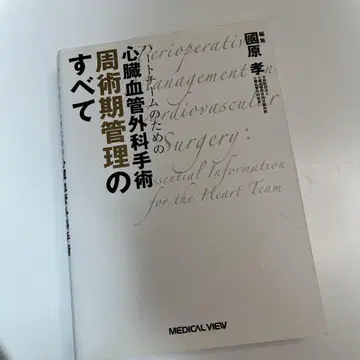 編集
國原 孝
ハートチームのための
心臓血管外科手術
周術期管理の
すべて
Perioperative
Management in
Cardiovascular
Surgery:
Essential Information
for the Heart Team
MEDICAL VIEW